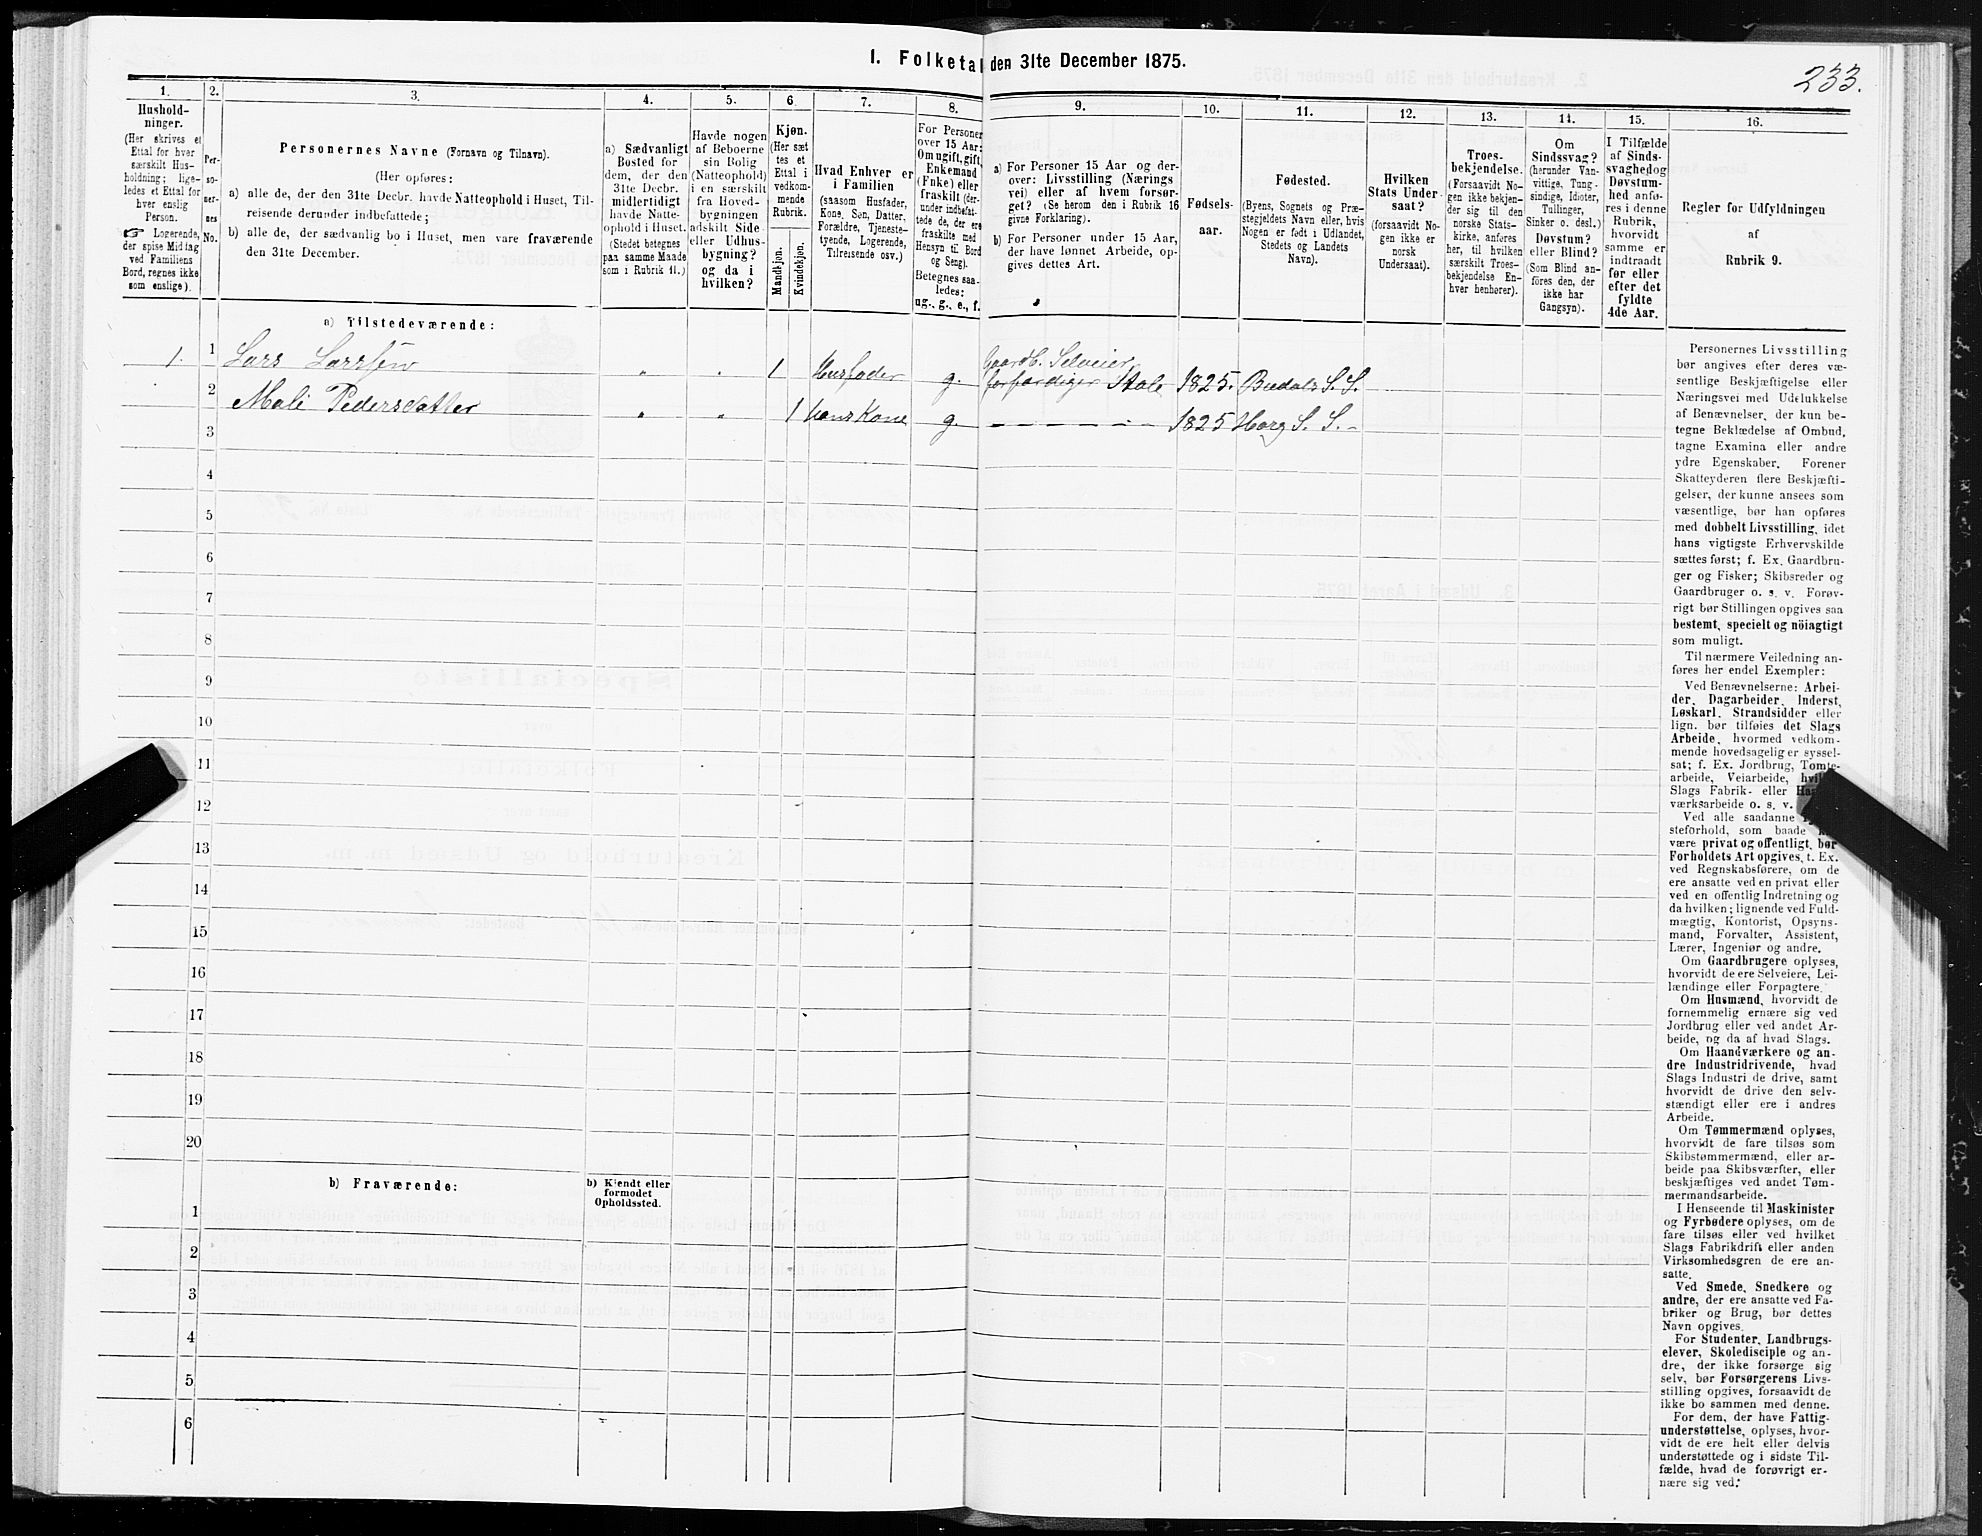 1. Folketal den 31te December 1875.
233.
1.
2.
3.
4.
5.
6.
7.
8.
9.
10.
11.
12.
13.
14.
15.
16.
Hushold-
ninger.
(Her skrives et
Ettal for hver
særskilt Hus-
holdning; lige-
ledes et Ettal for
hver enslig
Person.
☞ Logerende,
der spise Middag
ved Familiens
Bord, regnes ikke
som enslige).
Per-
so-
ner-
nes
No.
Personernes Navne (Fornavn og Tilnavn).
(Her opføres:
a) alle de, der den 31te Decbr. havde Natteophold i Huset, Til-
reisende derunder indbefattede;
b) alle de, der sædvanlig bo i Huset, men vare fraværende
den 31te December.
a) Sædvanligt
Bosted for
dem, der den
31te Decbr.
midlertidigt
havde Natte-
ophold i Huset.
(Stedet betegnes
paa samme Maade
som i Rubrik 11.)
Havde nogen
af Beboerne
sin Bolig
(Natteophold)
i en særskilt
fra Hoved-
bygningen
adskilt Side-
eller Udhus-
bygning?
og da i
hvilken?
Kjøn.
(Her sæt
tes et
Ettal i
vedkom-
mende
Rubrik.
Mandkjøn.
Kvindekjøn.
Hvad Enhver er
i Familien
(saasom Husfader,
Kone, Søn, Datter,
Forældre, Tjeneste-
tyende, Logerende,
Tilreisende osv.)
For Personer
over 15 Aar:
Om ugift, gift,
Enkemand
(Enke) eller
fraskilt (der-
under indbefat-
tede de, der ere
fraskilte med
Hensyn til Bord
og Seng).
Betegnes saa-
ledes:
ug., g., e., f.
a) For Personer 15 Aar og der-
over: Livsstilling (Nærings
vei) eller af hvem forsør-
get? (Se herom den i Rubrik 16
givne Forklaring).
b) For Personer under 15 Aar,
der have lønnet Arbeide, op-
gives dettes Art.
Fødsels-
aar.
Fødested.
(Byens, Sognets og Præ-
stegjeldets Navn eller, hvis
Nogen er født i Udlandet,
Stedets og Landets
Navn).
Hvilken
Stats Under-
saat?
(forsaavidt No-
gen ikke er
norsk
Undersaat).
Troes-
bekjendelse.
(Forsaavidt No-
gen ikke bekjen-
der sig til den
norske Stats-
kirke, anføres
her, til hvilken
særskilt Troes-
bekjendelse En-
hver henhører).
Om
Sindssvag?
(herunder Van-
vittige, Tung-
sindige, Idioter,
Tullinger,
Sinker o. desl.)
Døvstum?
eller Blind?
(Som Blind an-
føres den, der
ikke har
Gangsyn).
I Tilfælde
af Sinds-
svaghed og
Døvstum-
hed anfø-
res i denne
Rubrik,
hvorvidt
samme er
indtraadt
før eller
efter det
fyldte
4de Aar.
Regler for Udfyldningen
af
Rubrik 9.
a) Tilstedeværende:
1 1 Lars Larssen " " 1 Husfader g. Gaardb. Selveier
forfærdiger Stole 1825. Budals S. S.
2 Mali Pedersdatter " " 1 hans Kone g. – – – – – – 1825 Horg S. S. –
3
4
5
6
7
8
9
10
11
12
13
14
15
16
17
18
19
20
b) Fraværende:
b) Kjendt eller
formodet
Opholdssted.
1
2
3
4
5
6
Personernes Livsstilling
bør angives efter deres væ-
sentlige Beskjæftigelse eller
Næringsvei med Udelukkelse
af Benævnelser, der kun be-
tegne Beklædelse af Ombud,
tagne Examina eller andre
ydre Egenskaber. Forener
Skatteyderen flere Beskjæfti-
gelser, der kunne ansees som
væsentlige, bør han opføres
med dobbelt Livsstilling, idet
hans vigtigste Erhvervskilde
sættes først; f. Ex. Gaardbru-
ger og Fisker; Skibsreder og
Gaardbruger o. s. v. Forøv-
rigt bør Stillingen opgives saa
bestemt, specielt og nöiagtigt
som muligt.
Til nærmere Veiledning an-
føres her endel Exempler:
Ved Benævnelserne: Arbei-
der, Dagarbeider, Inderst,
Løskarl, Strandsidder eller
lign. bør tilføies det Slags
Arbeide, hvormed vedkom-
mende hovedsagelig er syssel-
sat; f. Ex. Jordbrug, Tomte-
arbeide, Veiarbeide,
Slags Fabrik- eller
værksarbeide o. s. v.
Ved alle saadanne
steforhold, som baade
være privat og offentligt, bør
Forholdets Art opgives, t. Ex.
ved Regnskabsførere, om de
ere ansatte ved en privat eller
ved en offentlig Indretning og
da hvilken; lignende ved Fuld-
mægtig, Kontorist, Opsyns-
mand, Forvalter, Assistent,
Lærer, Ingeniør og andre.
Om Gaardbrugere oplyses,
hvorvidt de ere Selveiere, Lei-
lændinge eller Forpagtere.
Om Husmænd, hvorvidt de
fornemmelig ernære sig ved
Jordbrug eller ved andet Ar-
beide, og da af hvad Slags.
Om Haandværkere og an-
dre Industridrivende, hvad
Slags Industri de drive, samt
hvorvidt de drive den selv-
stændigt eller ere i andres
Arbeide.
Om Tømmermænd oplyses,
hvorvidt de fare tilsøs som
Skibstømmermænd, eller ar-
beide paa Skibsværfter, eller
beskjæftiges ved andet Tøm-
mermandsarbeide.
I Henseende til Maskinister
og Fyrbødere oplyses, om de
fare tilsøs eller ved hvilket
Slags Fabrikdrift eller anden
Virksomhedsgren de ere an-
satte.
Ved Smede, Snedkere og
andre, der ere ansatte ved Fa-
briker og Brug, bør dettes
Navn opgives.
For Studenter, Landbrugs-
elever, Skoledisciple og an-
dre, der ikke forsørge sig
selv, bør Forsørgerens Livs-
stilling opgives, forsaavidt de
ikke bo sammen med denne.
For dem, der have Fattig-
understøttelse, oplyses, hvor-
vidt de ere helt eller delvis
understøttede og i sidste Til-
fælde, hvad de forøvrigt er-
nære sig ved.